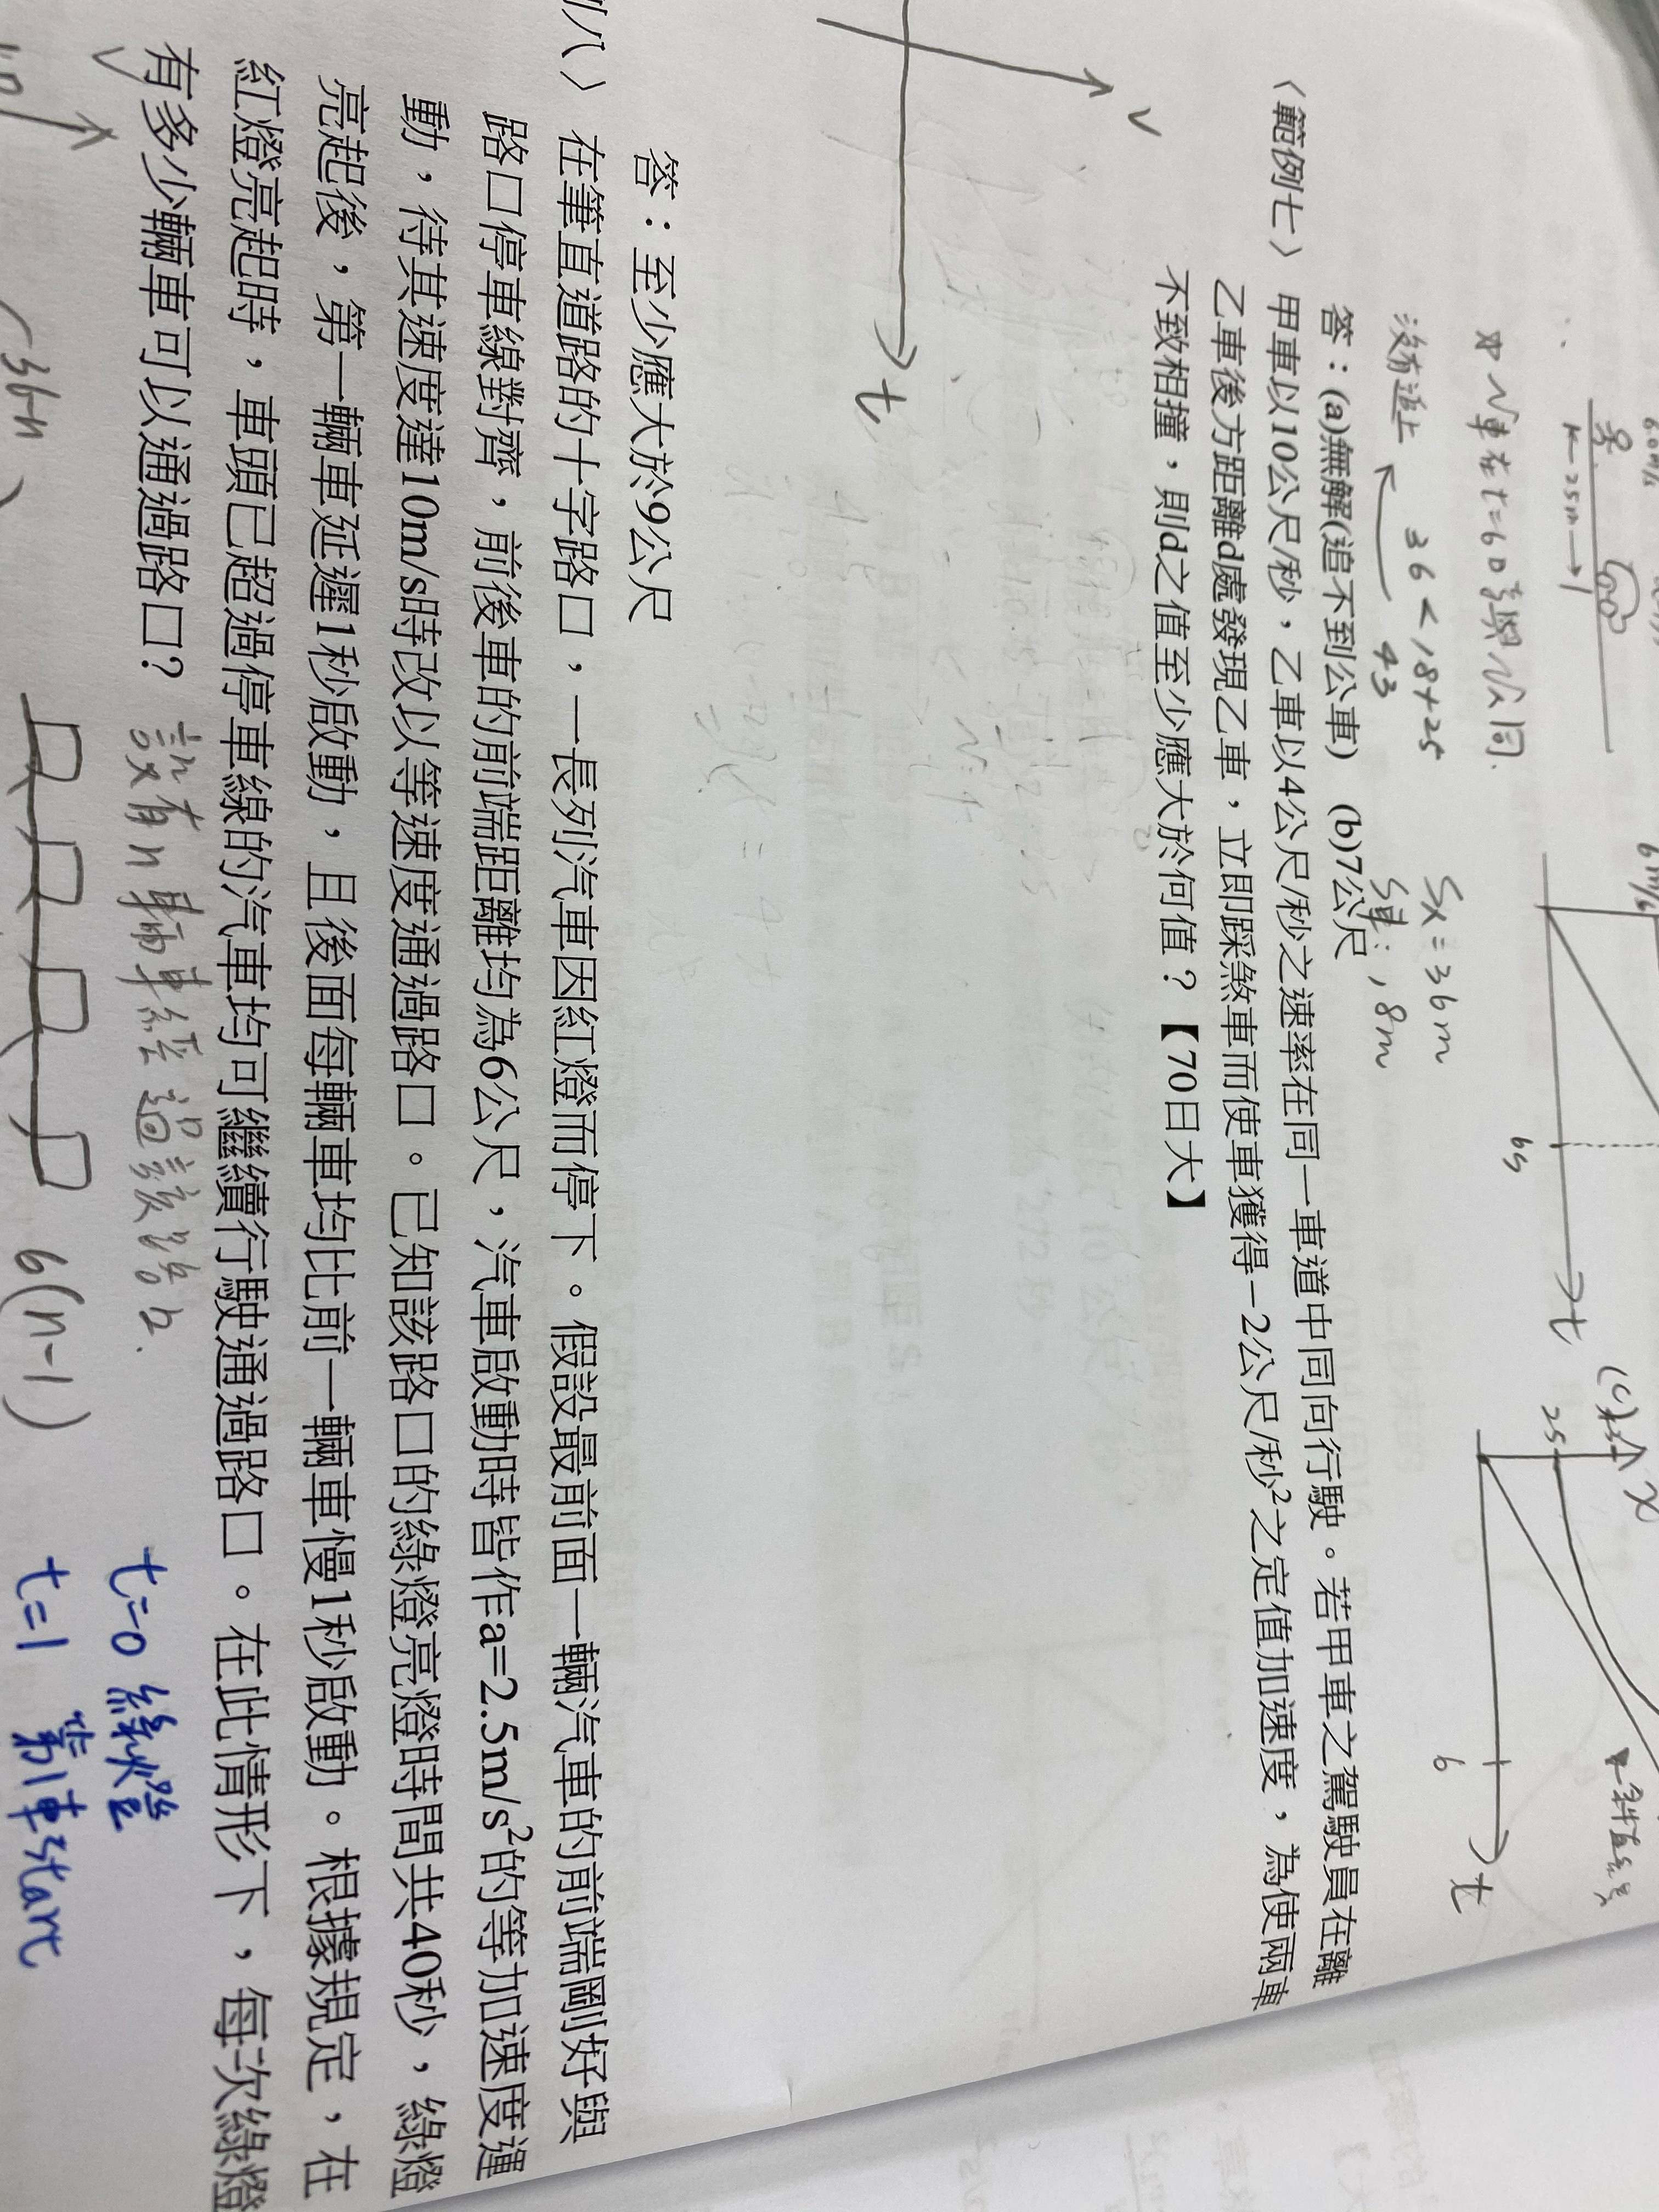 60m/s
25m
如小華在t=6s與公同
沒有追上
36<18+25
43
Sx=36m
S車:18m
6m/s
6s
t
(c)
x
25
6
t
斜直線
答：(a)無解(追不到公車) (b)7公尺
〈範例七〉甲車以10公尺/秒，乙車以4公尺/秒之速率在同一車道中同向行駛。若甲車之駕駛員在離
乙車後方距離d處發現乙車，立即踩煞車而使車獲得−2公尺/秒²之定值加速度，為使兩車
不致相撞，則d之值至少應大於何值？【70日大】
v
t
答：至少應大於9公尺
例八〉在筆直道路的十字路口，一長列汽車因紅燈而停下。假設最前面一輛汽車的前端剛好與
路口停車線對齊，前後車的前端距離均為6公尺，汽車啟動時皆作a=2.5m/s²的等加速度運
動，待其速度達10m/s時改以等速度通過路口。已知該路口的綠燈亮燈時間共40秒，綠燈
亮起後，第一輛車延遲1秒啟動，且後面每輛車均比前一輛車慢1秒啟動。根據規定，在
紅燈亮起時，車頭已超過停車線的汽車均可繼續行駛通過路口。在此情形下，每次綠燈
有多少輛車可以通過路口？
設有n輛車經過該路口.
6(n-1)
t=0 綠燈
t=1 第1車start
v